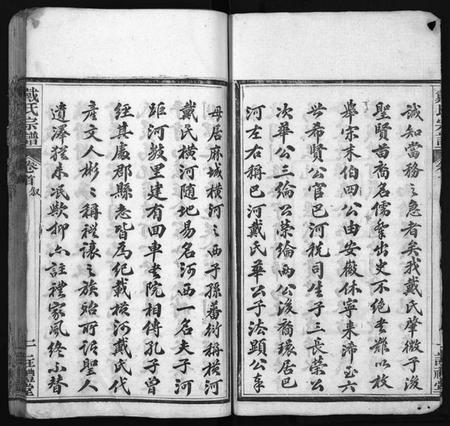 誠知當務之急者矣我戴氏肇微子後
聖賢苗裔名儒叠出史不絶書難以枚
舉宋末伯四公由安徽休寧來蒞五六
世希賢公官巴河税司生子三長榮公
次華公三綸公榮綸兩公後裔環居巴
河左右稱巴河戴氏華公子法顕公奉
母居麻城横河之西子孫番衍稱横河
戴氏横河随地易名河西一名夫子河
距河数里建有回車書院相傳孔子曾
經其處郡縣志皆為紀載横河戴氏代
產文人彬之稱極濃之族殆所謂聖人
遺澤猶未泯歟抑亦詩禮家風終不替
戴氏宗譜
卷首
叙
二